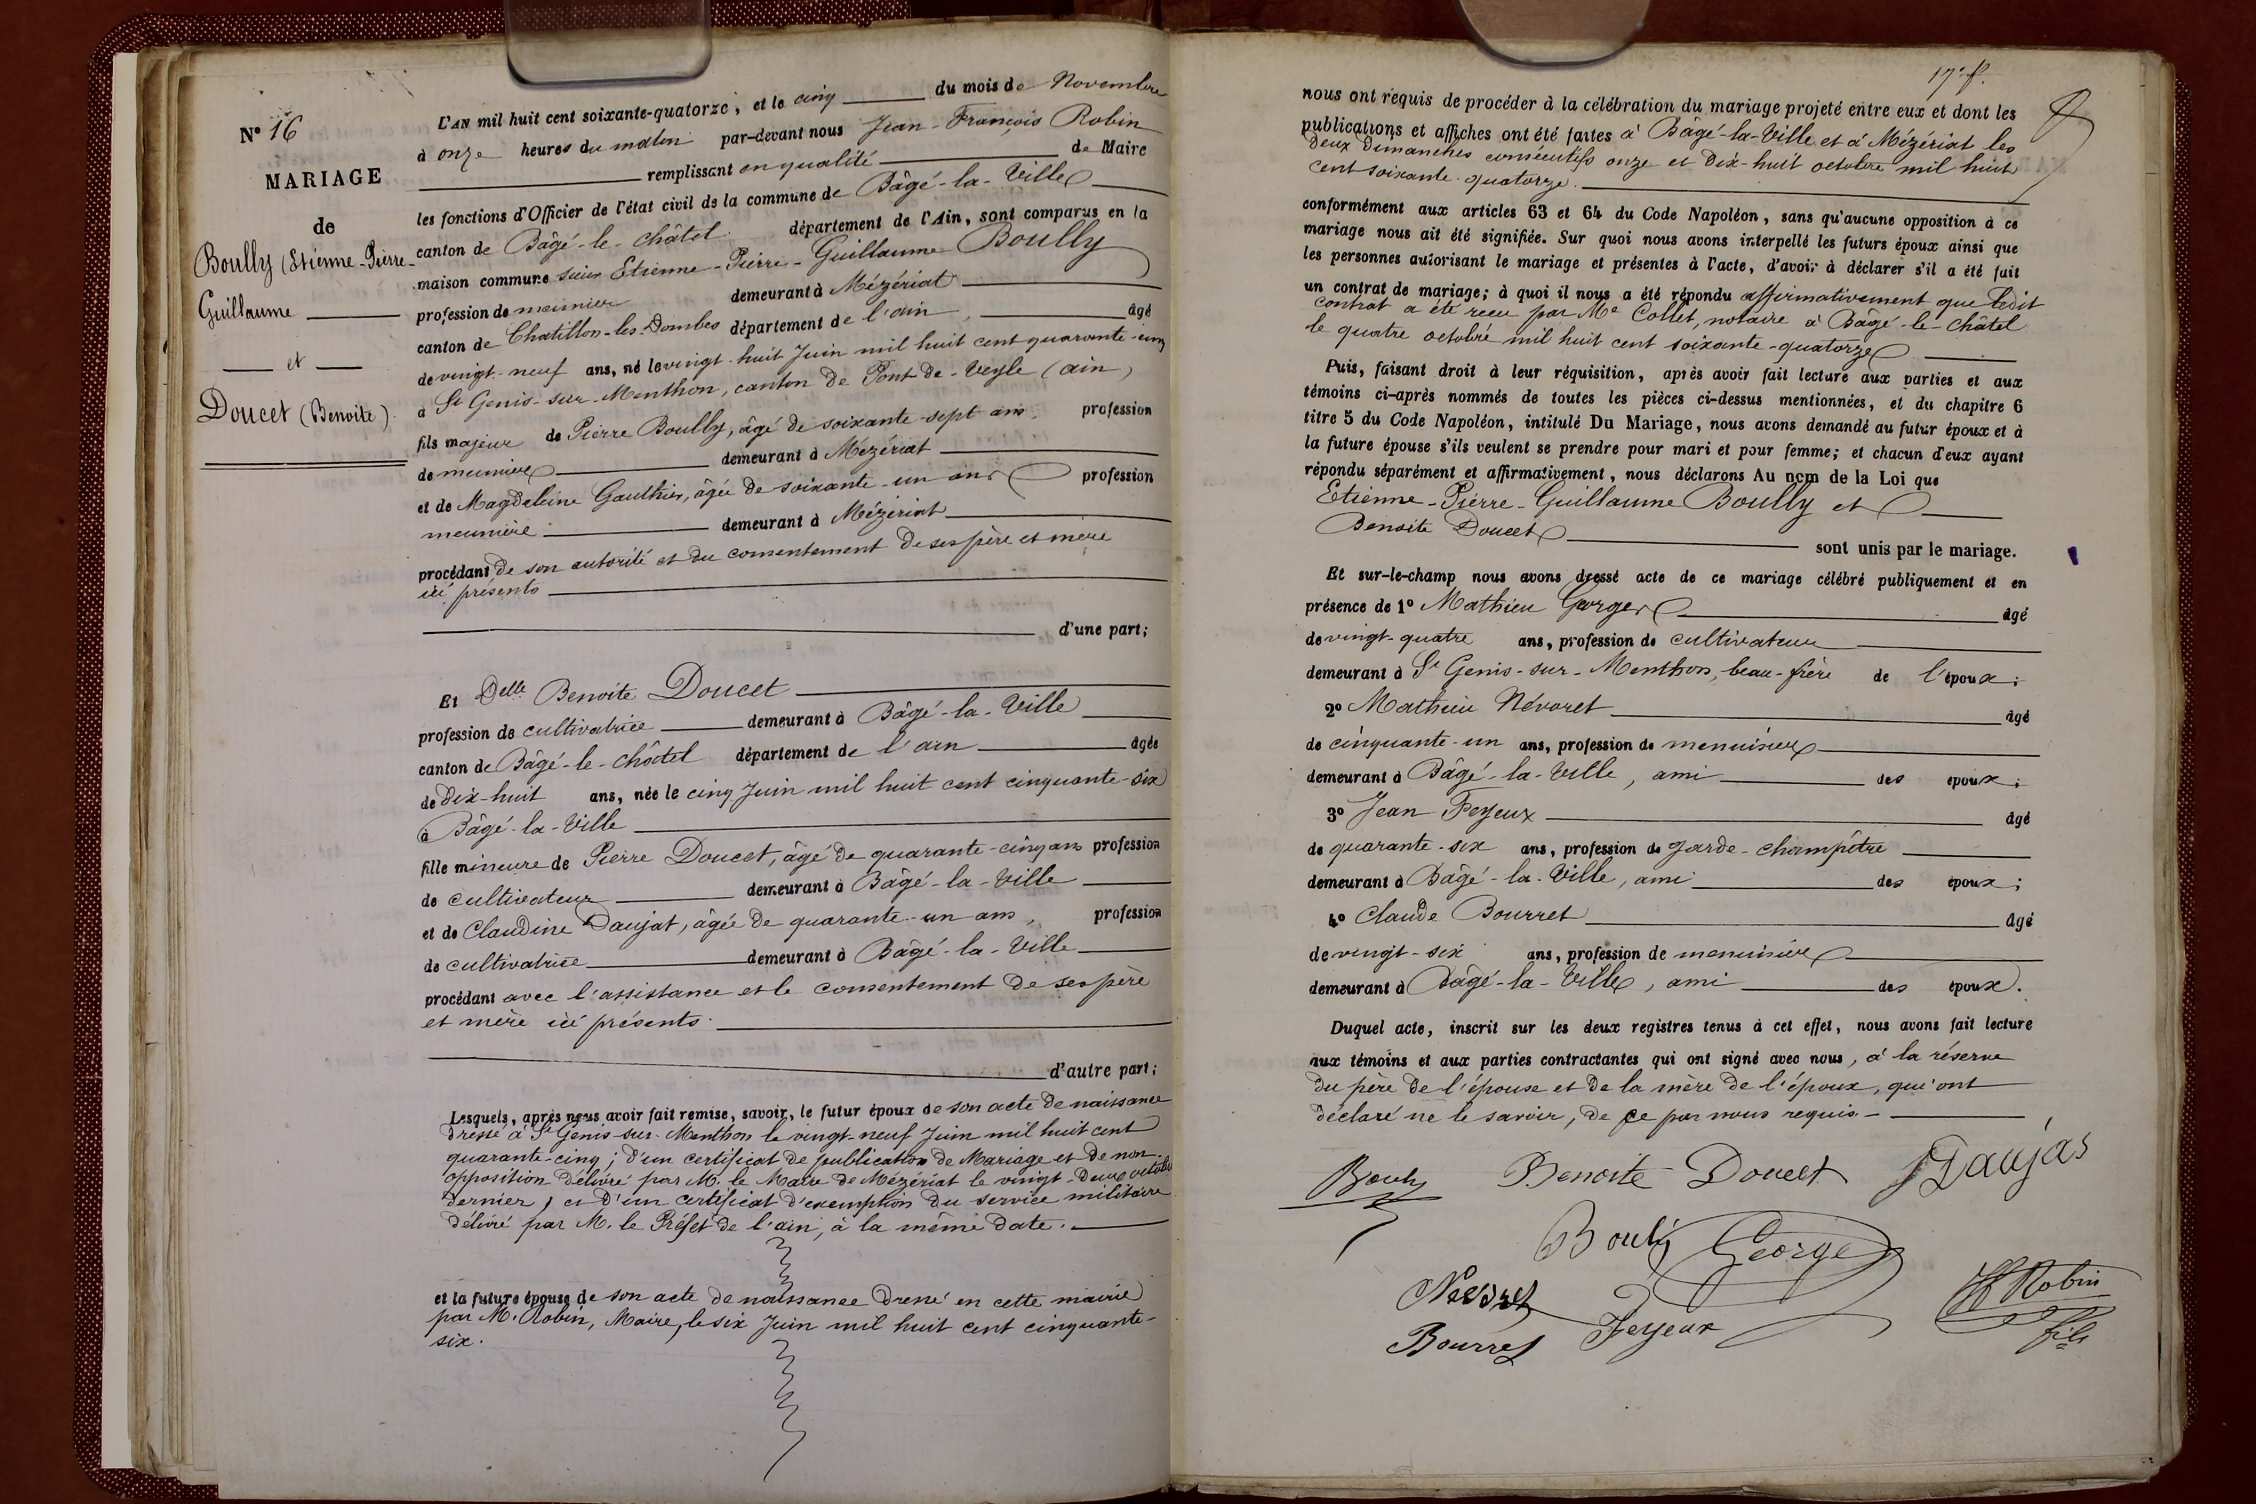 N° 16
MARIAGE
de
Boully (Etienne-Pierre-
Guillaume
et
Doucet (Benoite).
L'AN mil huit cent soixante-quatorze, et le cinq du mois de Novembre
à onze heures du matin par-devant nous Jean-François Robin
remplissant en qualité de Maire
les fonctions d'Officier de l'état civil de la commune de Bâgé-la-Ville
canton de Bâgé-le-châtel département de l'Ain, sont comparus en la
maison commune sieur Etienne-Pierre-Guillaume Boully
profession de meunier demeurant à Mézériat
canton de Chatillon-les-Dombes département de l'ain, âgé
de vingt-neuf ans, né le vingt-huit Juin mil huit cent quarante-cinq
à St Genis-sur-Menthon, canton de Pont-de-Veyle (ain)
fils majeur de Pierre Boully, âgé de soixante-sept ans profession
de meunier demeurant à Mézériat
et de Magdeleine Gauthier, âgée de soixante-un ans profession
meunière demeurant à Mézériat
procédant de son autorité et du consentement de ses père et mère
ici présents
d'une part;
Et Delle Benoite Doucet
profession de cultivatrice demeurant à Bâgé-la-Ville
canton de Bâgé-le-châtel département de l'ain âgée
de dix-huit ans, née le cinq Juin mil huit cent cinquante-six
à Bâgé-la-Ville
fille mineure de Pierre Doucet, âgé de quarante-cinq ans profession
de cultivateur demeurant à Bâgé-la-Ville
et de Claudine Daujat, âgée de quarante-un ans, profession
de cultivatrice demeurant à Bâgé-la-Ville
procédant avec l'assistance et le consentement de ses père
et mère ici présents.
d'autre part;
Lesquels, après nous avoir fait remise, savoir, le futur époux de son acte de naissance
dressé à St Genis-sur-Menthon le vingt-neuf Juin mil huit cent
quarante-cinq; d'un certificat de publication de Mariage et de non-
opposition délivré par M. le Maire de Mézériat le vingt-deux octobre
dernier, et d'un certificat d'exemption du service militaire
délivré par M. le Préfet de l'ain, à la même date.
et la future épouse de son acte de naissance dressé en cette mairie
par M. Robin, Maire, le six Juin mil huit cent cinquante-
six.
17e f.
nous ont requis de procéder à la célébration du mariage projeté entre eux et dont les
publications et affiches ont été faites à Bâgé-la-Ville et à Mézériat les
deux dimanches consécutifs onze et dix-huit octobre mil huit
cent soixante-quatorze.
conformément aux articles 63 et 64 du Code Napoléon, sans qu'aucune opposition à ce
mariage nous ait été signifiée. Sur quoi nous avons interpellé les futurs époux ainsi que
les personnes autorisant le mariage et présentes à l'acte, d'avoir à déclarer s'il a été fait
un contrat de mariage; à quoi il nous a été répondu affirmativement que ledit
contrat a été reçu par Me Collet, notaire à Bâgé-le-châtel
le quatre octobre mil huit cent soixante-quatorze
Puis, faisant droit à leur réquisition, après avoir fait lecture aux parties et aux
témoins ci-après nommés de toutes les pièces ci-dessus mentionnées, et du chapitre 6
titre 5 du Code Napoléon, intitulé Du Mariage, nous avons demandé au futur époux et à
la future épouse s'ils veulent se prendre pour mari et pour femme; et chacun d'eux ayant
répondu séparément et affirmativement, nous déclarons Au nom de la Loi que
Etienne-Pierre-Guillaume Boully et
Benoite Doucet
sont unis par le mariage.
Et sur-le-champ nous avons dressé acte de ce mariage célébré publiquement et en
présence de 1° Mathieu George âgé
de vingt-quatre ans, profession de cultivateur
demeurant à St Genis-sur-Menthon, beau-frère de l'époux;
2° Mathieu Névoret âgé
de cinquante-un ans, profession de menuisier
demeurant à Bâgé-la-Ville, ami des époux;
3° Jean Feyeux âgé
de quarante-six ans, profession de garde-champêtre
demeurant à Bâgé-la-Ville, ami des époux;
4° Claude Bourret âgé
de vingt-six ans, profession de menuisier
demeurant à Bâgé-la-Ville, ami des époux.
Duquel acte, inscrit sur les deux registres tenus à cet effet, nous avons fait lecture
aux témoins et aux parties contractantes qui ont signé avec nous, à la réserve
du père de l'épouse et de la mère de l'époux, qui ont
déclaré ne le savoir, de ce par nous requis
Bouly Benoite Doucet Daujas
Bouly George
Nevoret Feyeux JF Robin
Bourret fils